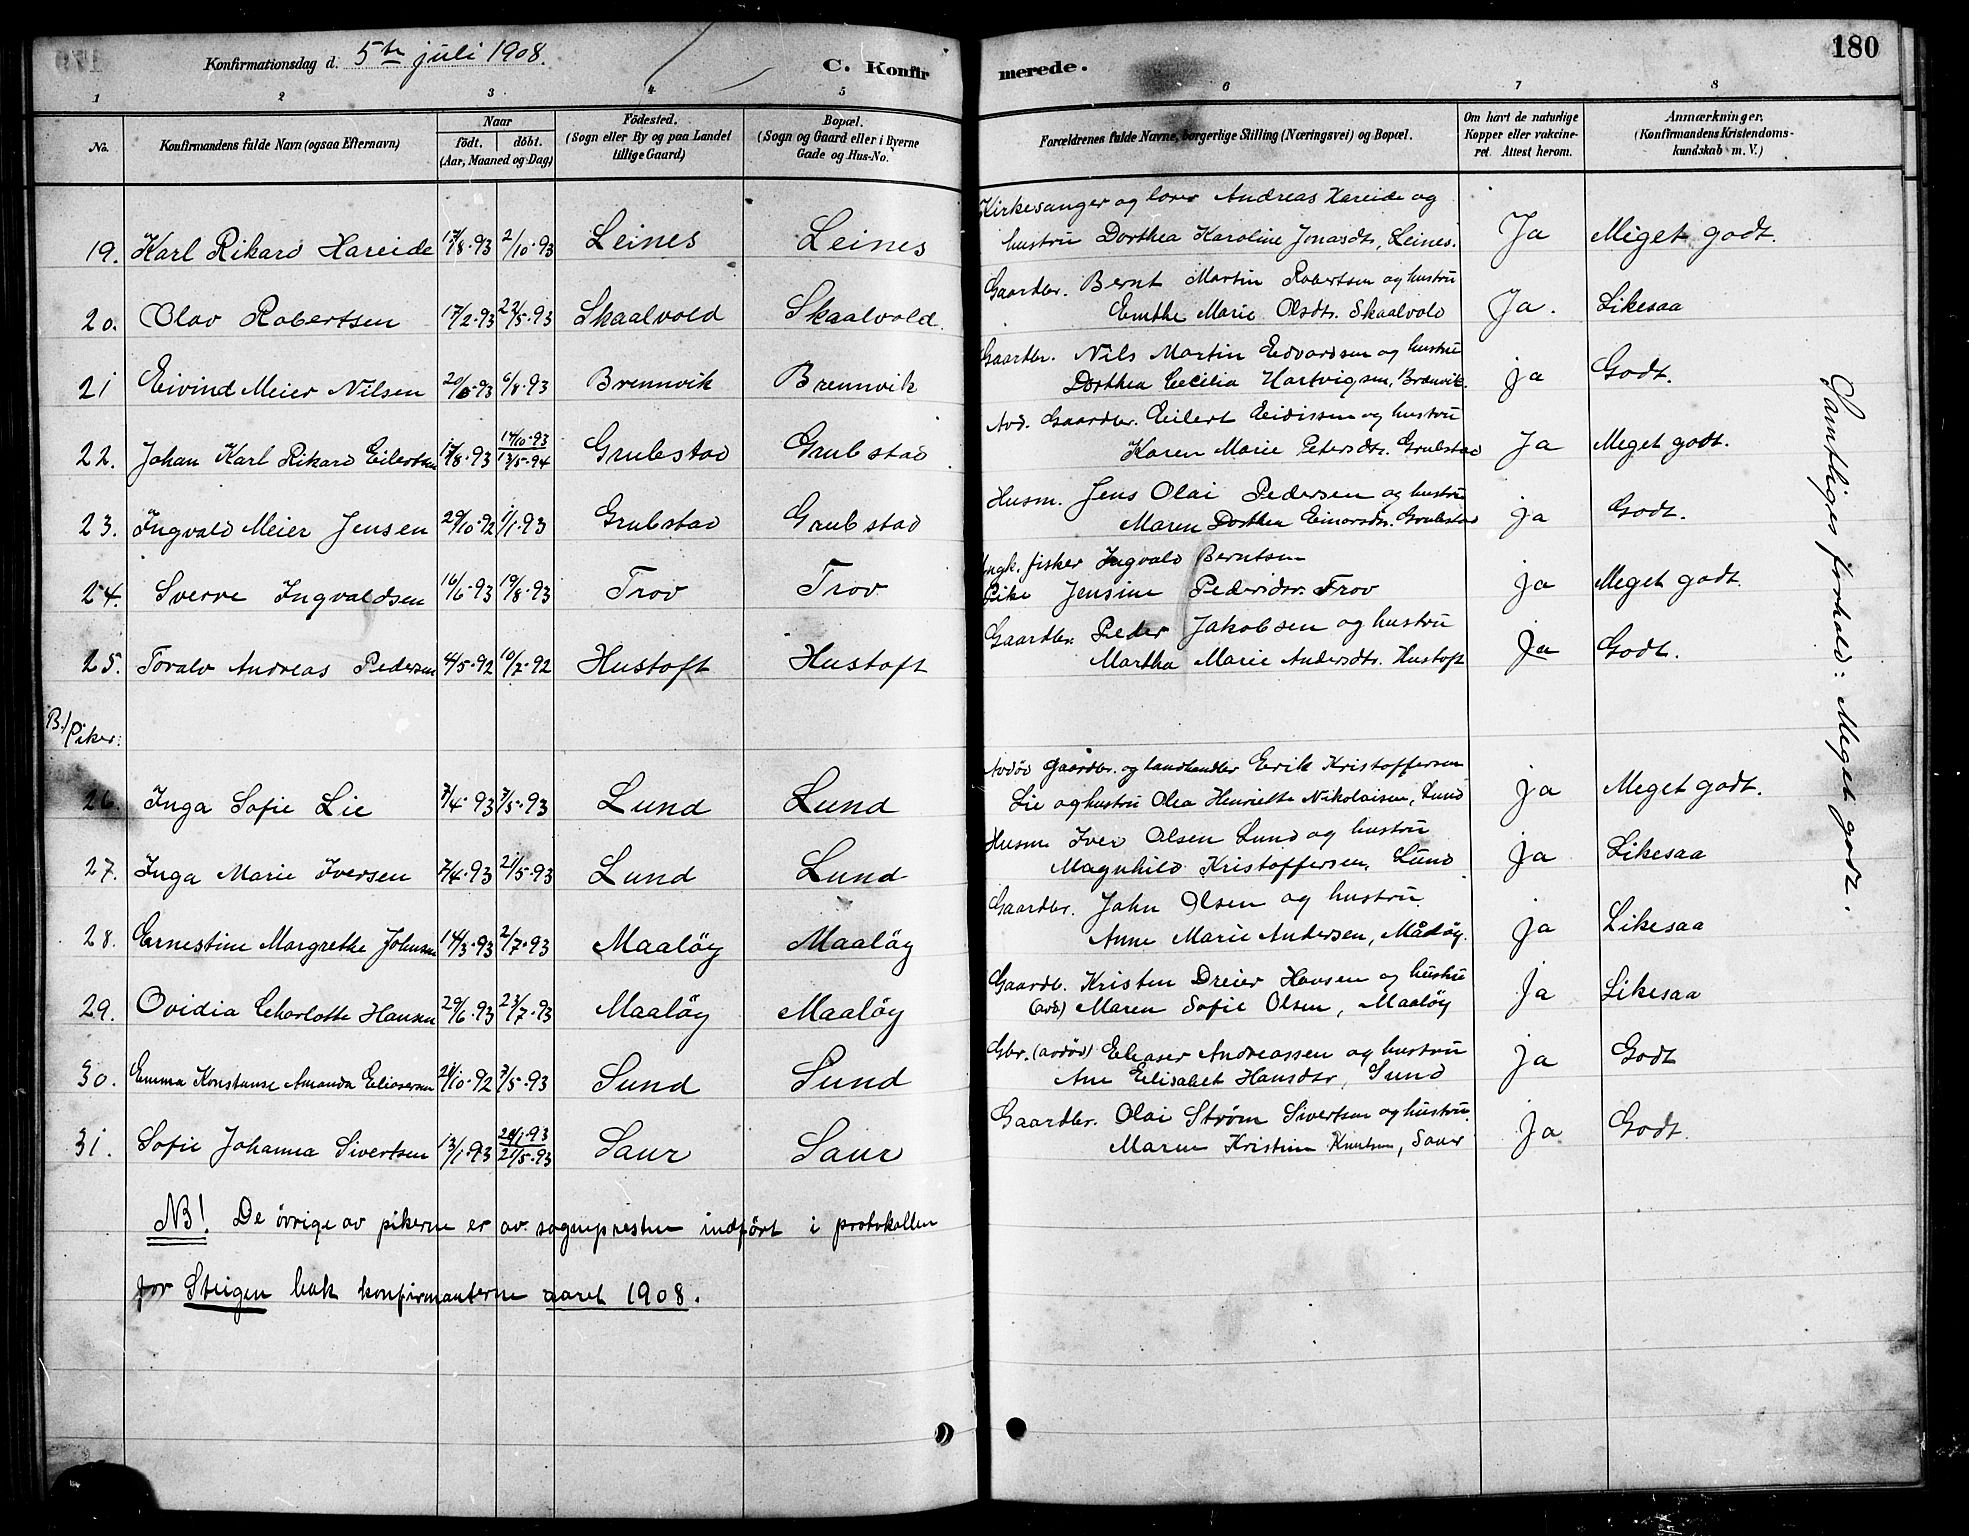 Konfirmationsdag d. 5te juli 1908.
C. Konfir
merede.
180
1 2 3 4 5 6 7 8
No.
Konfirmandens fulde Navn (ogsaa Efternavn)
Naar
födt. döbt.
(Aar, Maaned og Dag)
Födested.
(Sogn eller By og paa Landet
tillige Gaard)
Bopæl.
(Sogn og Gaard eller i Byerne
Gade og Hus-No.
Forældrenes fulde Navne, borgerlige Stilling (Næringsvei) og Bopæl.
Om havt de naturlige
Kopper eller vakcine-
ret. Attest herom.
Anmærkninger.
(Konfirmandens Kristendoms-
kundskab m. V.)
Kirkesanger og lærer Andreas Hareide og
19. Karl Rikard Hareide 17/8-93 2/10-93 Leines Leines hustru Dorthea Karoline Jonasdtr, Leines. Ja Meget godt.
Gaardbr. Bernt Martin Robertsen og hustru
20. Olav Robertsen 17/2-93 22/5-93 Skaalvold Skaalvold. Emthe Marie Olsdtr. Skaalvold Ja. Likesaa
Gaardbr. Nils Martin Edvardsen og hustru
21 Eivind Meier Nilsen 20/5-93 6/8-93 Brennvik Brennvik Dorthea Cecilia Hartvigsen, Brænvik. ja Godt.
Avd. Gaardbr. Eilert Eidissen og hustru
22. Johan Karl Rikard Eilertsen 17/8-93 14/10-93 13/5-94 Grubstad Grubstad Karen Marie Petersdtr. Grubstad Ja Meget godt.
Husm. Jens Olai Pedersen og hustru
23. Ingvald Meier Jensen 29/10-92 1/1-93 Grubstad Grubstad Maren Dorthea Einarsdtr. Grubstad ja Godt.
Ungk. fisker Ingvald Berntsen
24. Sverre Ingvaldsen 16/6-93 19/8-93 Trov Trov Pike Jensine Pedersdtr. Trov ja Meget godt.
Gaardbr. Peder Jakobsen og hustru
25. Toralv Andreas Pedersen 4/5-92 10/7-92 Hustoft Hustoft Martha Marie Andersdtr. Hustoft Ja Godt.
B.) Piker:
Avdøde gaardbr. og landhandler Erik Kristoffersen
26. Inga Sofie Lie 7/4-93 7/5-93 Lund Lund Lie og hustru Olea Henriette Nikolaisen, Lund ja Meget godt.
Husm. Iver Olsen Lund og hustru
27. Inga Marie Iversen 7/4-93 21/5-93 Lund Lund Magnhild Kristoffersen. Lund ja Likesaa
Gaardbr. John Olsen og hustru
28. Ernestine Margrethe Johnsen 14/3-93 2/7-93 Maaløy Maaløy Anne Marie Andersen, Måløy. ja Likesaa
Gaardb. Kristen Dreier Hansen og hustru
29. Ovidia Charlotte Hansen 29/6-93 23/7-93 Maaløy Maaløy (avd) Maren Sofie Olsen, Maaløy Ja Likesaa
Gbr. (avdød) Eleaser Andreassen og hustru
30. Emma Konstanse Amanda Eliasersen 28/10-92 7/5-93 Sund Sund Ane Elisabet Hansdtr, Sund ja Godt
Gaardbr. Olai Strøm Sivertsen og hustru
31. Sofie Johanna Sivertsen 13/1-93 29/1-93 21/5-93 Saur Saur Maren Kristine Knutsen, Saur Ja Godt.
Samtliges forhold: Meget godt.
NB! De øvrige av pikerne er av sognepresten indført i protokollen
for Steigen bak konfirmanterne aaret 1908.